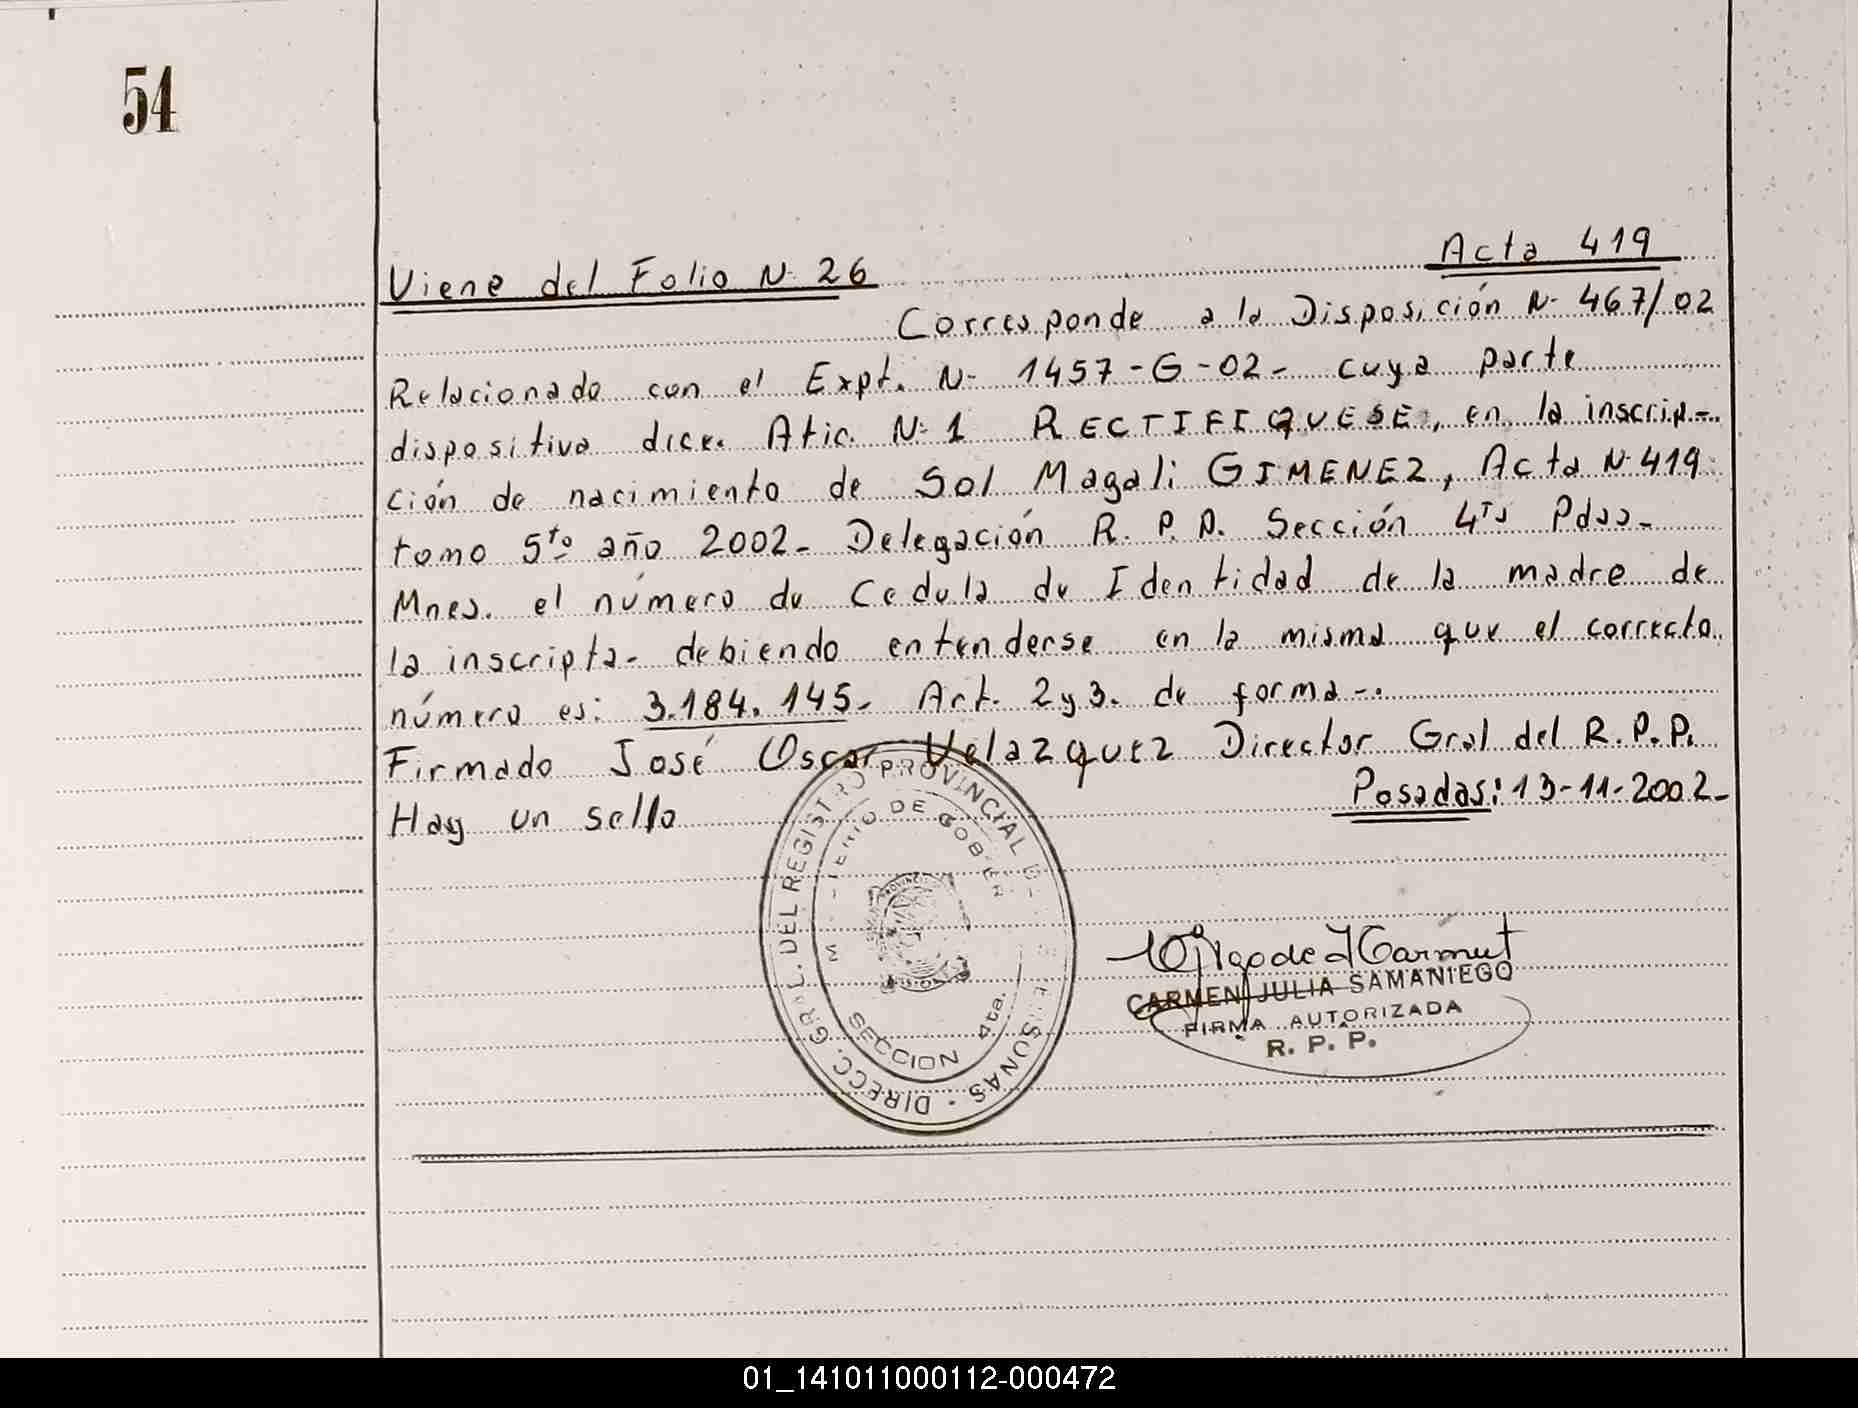 54
Viene del Folio N- 26
Acta 419
Corresponde a la Disposición N- 467/02
Relacionado con el Expt. N- 1457-G-02- cuya parte
dispositiva dice. Atic. N- 1 RECTIFIQUESE, en la inscrip-
ción de nacimiento de Sol Magali GIMENEZ, Acta N- 419
tomo 5to año 2002- Delegación R. P. P. Sección 4ta Pdas-
Mnes. el número de Cedula de Identidad de la madre de
la inscripta- debiendo entenderse en la misma que el correcto
número es: 3.184.145- Art. 2 y 3. de forma-.
Firmado José Oscar Velazquez Director Gral del R.P.P.
Hay un sello
Posadas: 13-11-2002-
DIRECC. GRAL. DEL REGISTRO PROVINCIAL
DE GOB
SECCION 4ta.
CARMEN JULIA SAMANIEGO
FIRMA AUTORIZADA
R. P. P.
01_141011000112-000472